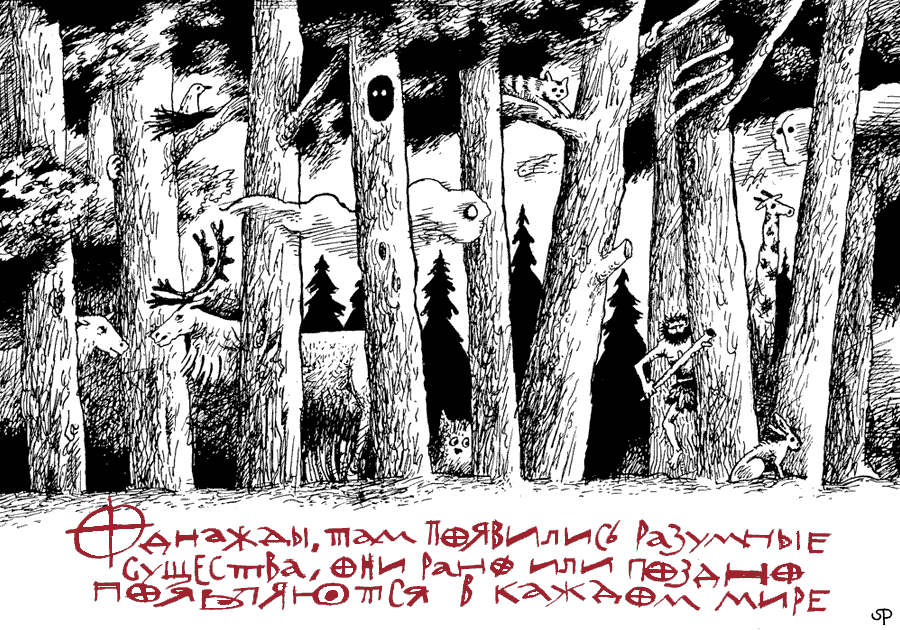 Однажды, там появились разумные
существа, они рано или поздно
появляются в каждом мире